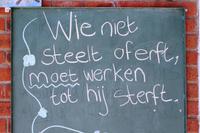 Wie niet
steelt of erft,
moet werken
tot hij sterft.